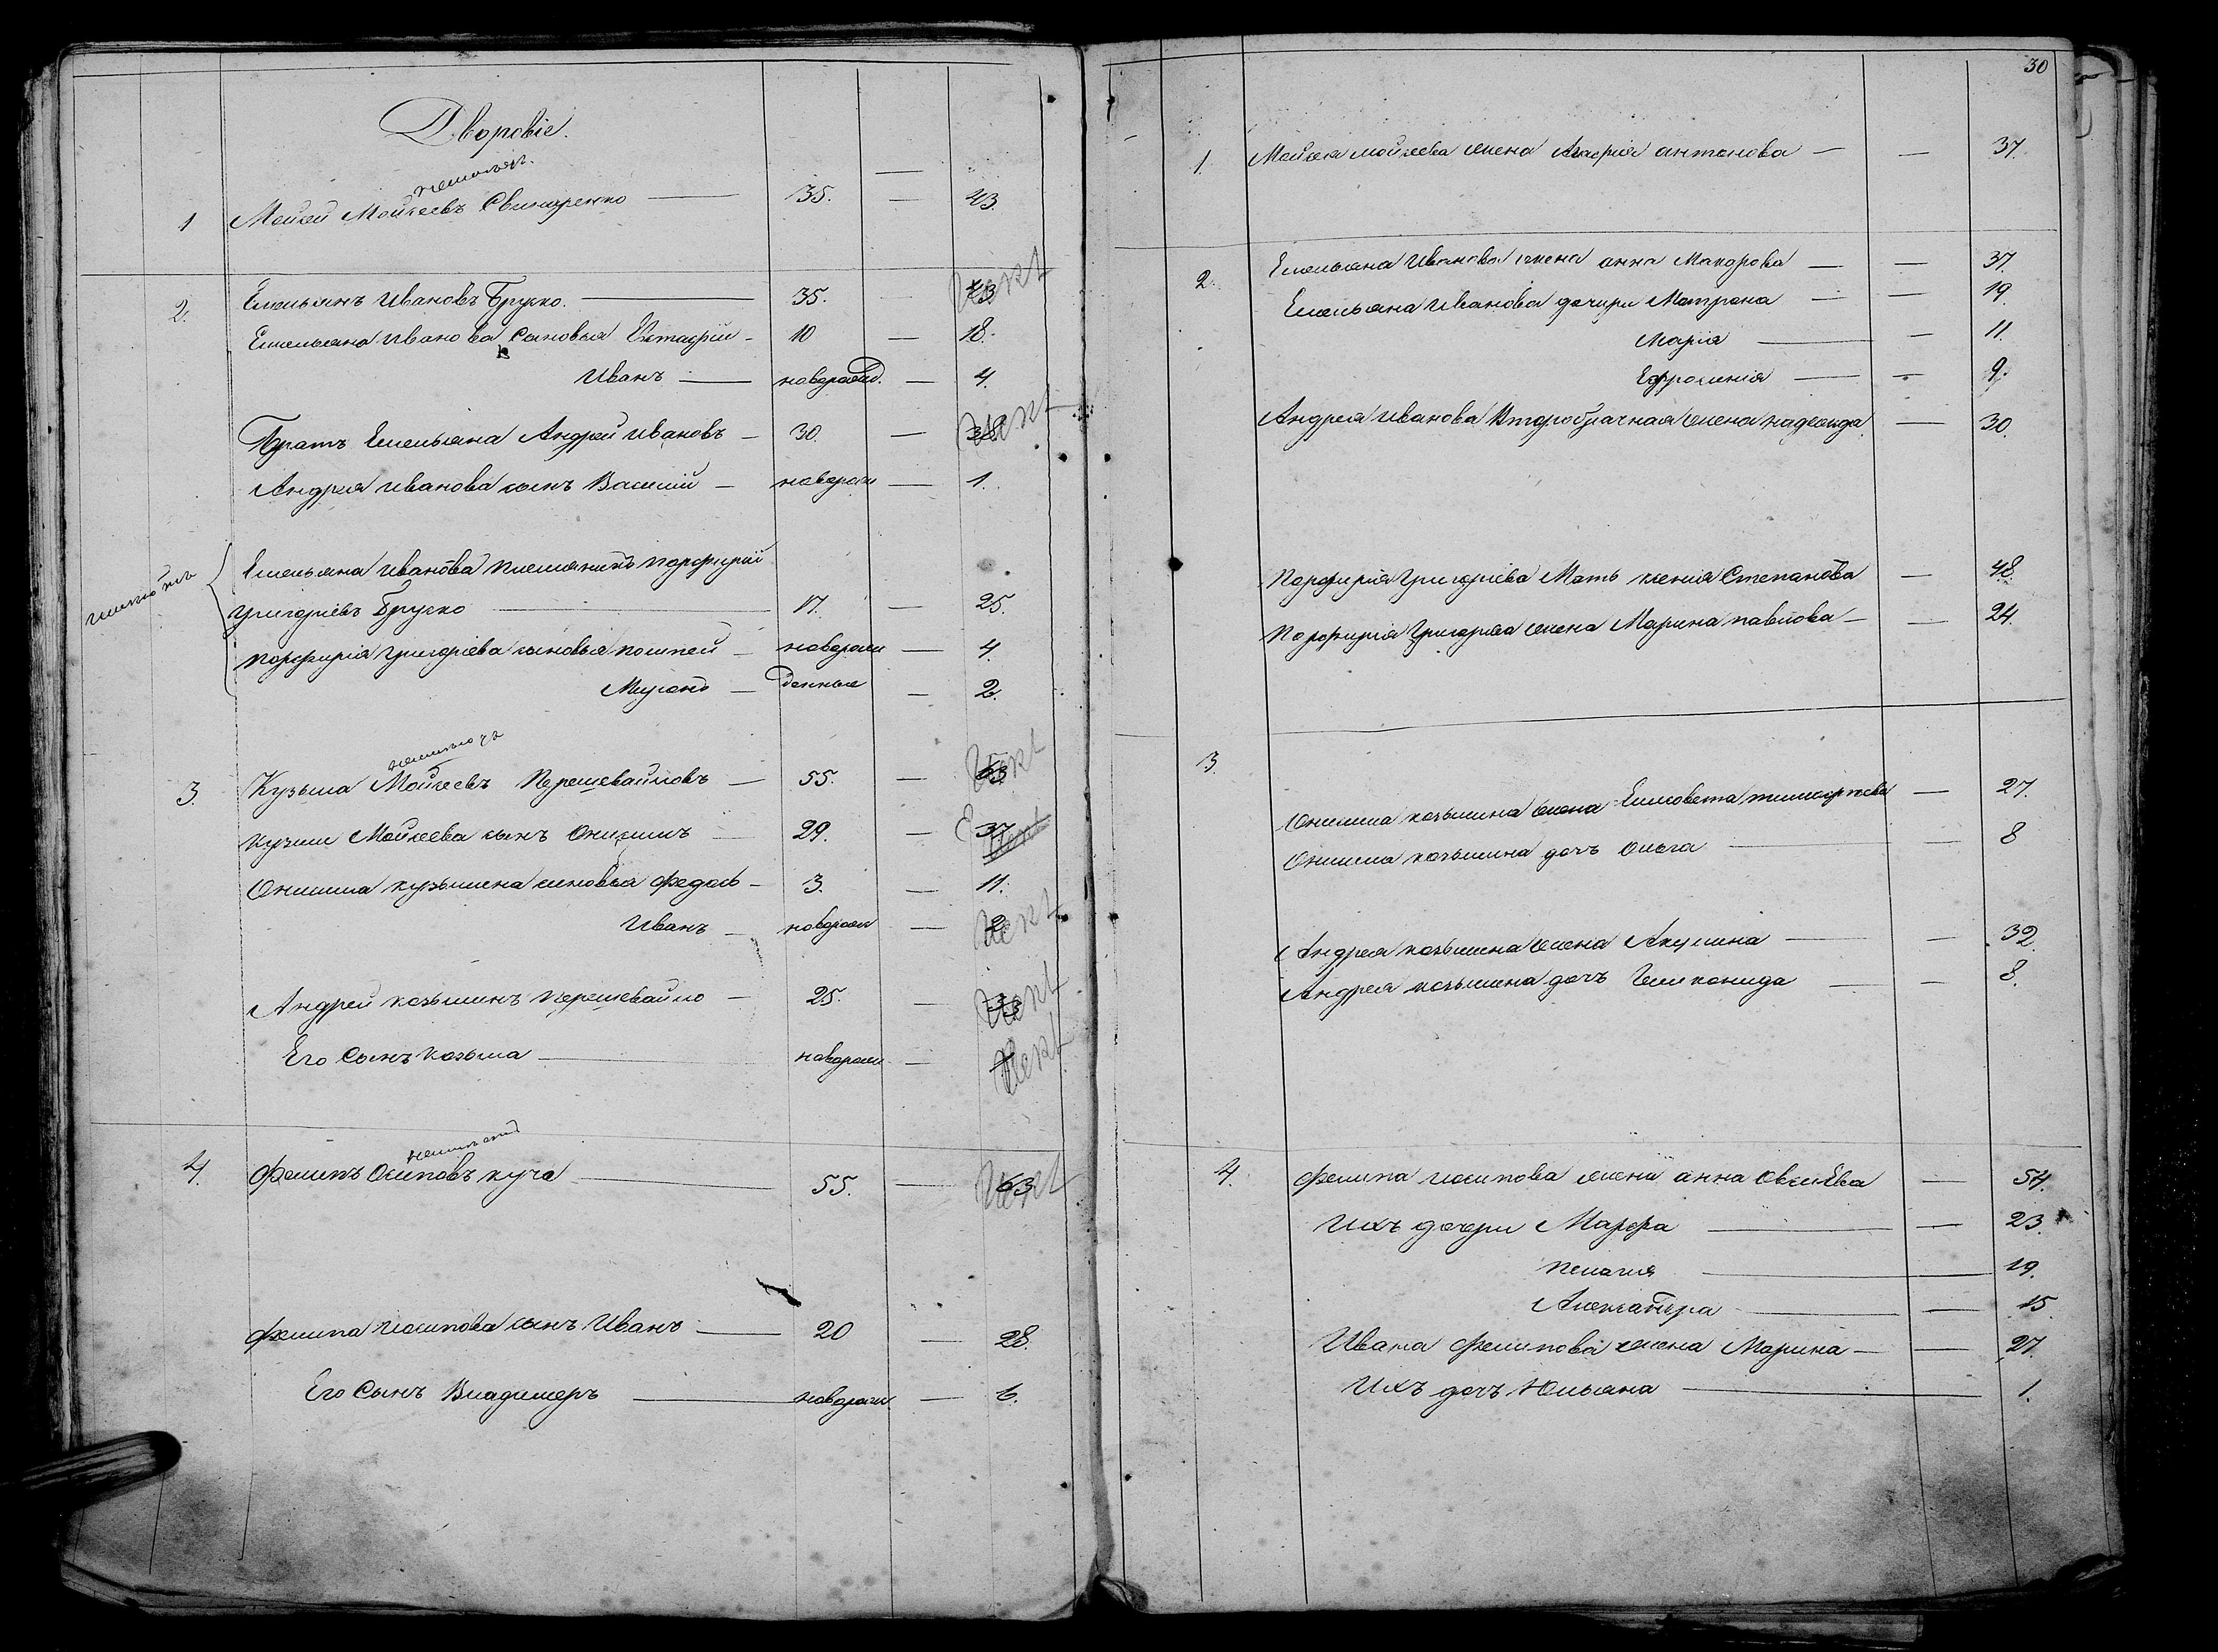 Дворовіе.
1 Мойсей Мойсеевъ Свинаренко — 35. — 43.
2. Емельянъ Ивановъ Бруско. — 35. — 43
Емельяна Иванова сыновья Евстафій — 10 — 18.
Иванъ — новорожд. — 4.
Братъ Емельяна Андрей Ивановъ — 30. — 38
Андрея Иванова сынъ Василій — новорож — 1.
Емельяна Иванова племяникъ Порфирій
Григоріевъ Бруско — 17. — 25.
Порфирія Григоріева сыновья Помпей — новорож — 4.
денные — 2.
3. Кузьма Мойсеевъ Перешевайловъ — 55. — 63
Кузьми Мойсеева сынъ Онисимъ — 29. — 37
Онисима Кузьмина сыновья Федоръ — 3. — 11.
Иванъ — новорож — 2
Андрей Козьминъ Перешевайло — 25. — 33
Его Сынъ Козьма — новорож —
4. Филипъ Осиповъ Куча — 55. — 63
Филипа Иосипова сынъ Иванъ — 20 — 28.
Его Сынъ Владимеръ — новорож — 6.
30
1. Мойсея Мойсеева жена Агафія Антонова — — 37.
2. Емельяна Иванова жена Анна Макарова — — 37.
Емельяна Иванова дочери Матрона — — 19.
Марія — — 11.
Ефросинія — — 9.
Андрея Иванова Второбрачная жена Надежда — 30.
Порфирія Григоріева Мать Ксенія Степанова — 48.
Порфирія Григорева жена Марина Павлова — — 24.
3. Онисима Козьмина жена Елисовета — 27.
Онисима Козьмина дочъ Ольга — — 8
Андрея Козьмина жена Акулина — — 32.
Андрея Козьмина дочъ — — 8.
4. Филипа Иосипова жена Анна Овсіева — 54.
Ихъ дочери Марфа — — 23.
Пелагия — 19.
Александра — — 15
Ивана Филипова жена Марина — — 27.
Ихъ дочъ Юльяна — 1.